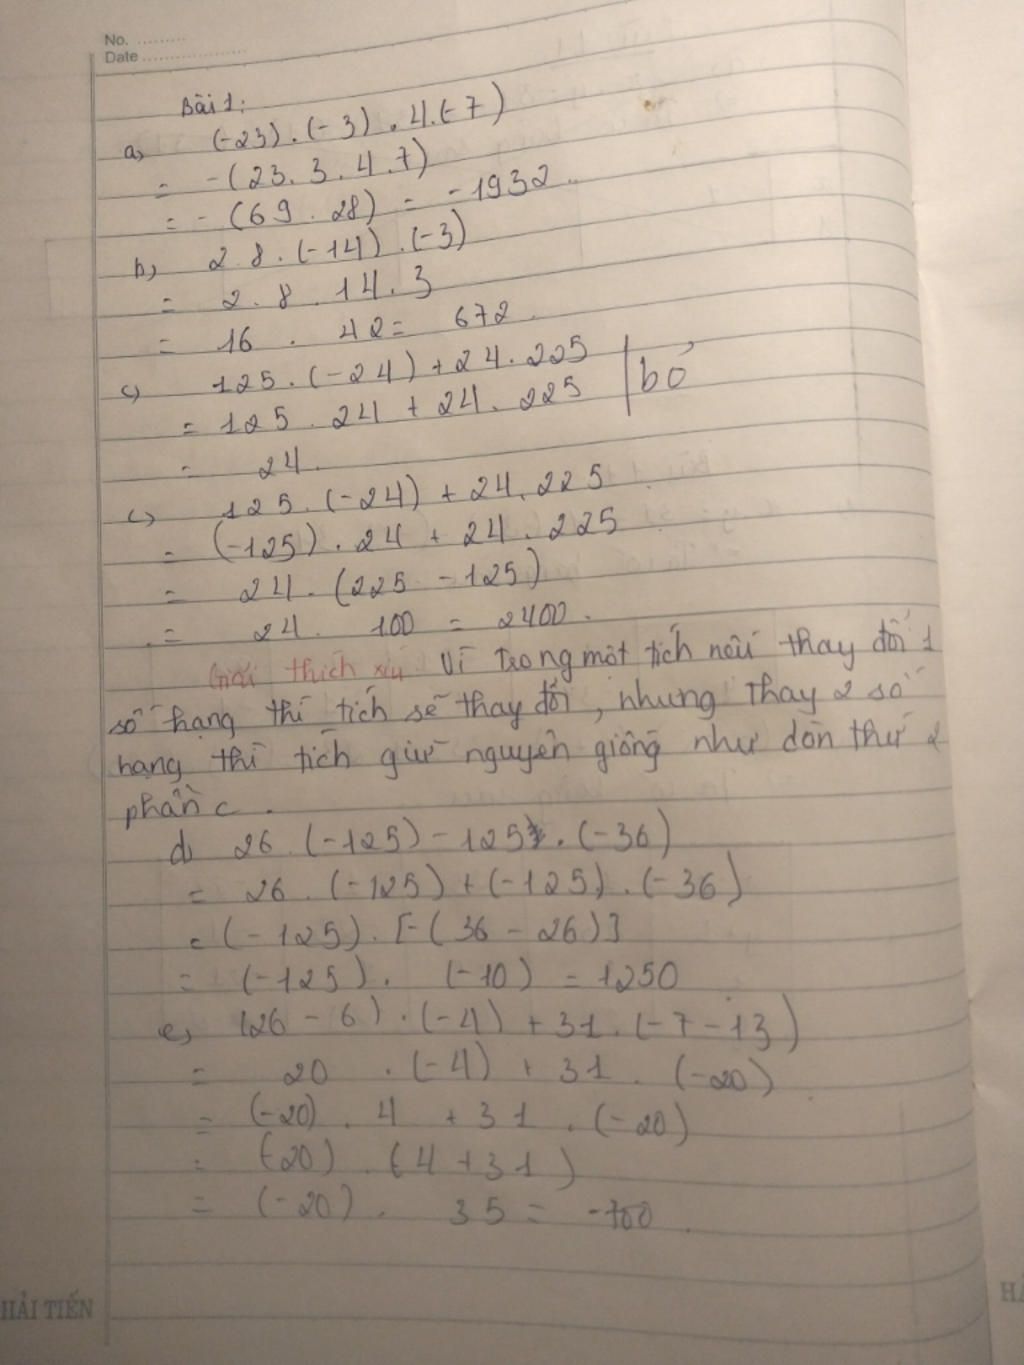 No. ..........
Date ....................
Bài 1:
a, (-23).(-3).4.(-7)
= -(23.3.4.7)
= -(69.28) = -1932.
b, 2.8.(-14).(-3)
= 2.8.14.3
= 16.42 = 672.
c, 125.(-24)+24.225 | bỏ
= 125.24+24.225
= 24.
c, 125.(-24)+24.225
= (-125).24+24.225
= 24.(225-125)
= 24.100 = 2400.
Giải thích xíu Vì trong một tích nếu thay đổi 1
số hạng thì tích sẽ thay đổi, nhưng thay 2 số
hạng thì tích giữ nguyên giống như dòn thứ 2
phần c.
d, 26.(-125)-125.(-36)
= 26.(-125)+(-125).(-36)
= (-125).[-(36-26)]
= (-125).(-10) = 1250
e, (26-6).(-4)+31.(-7-13)
= 20.(-4)+31.(-20)
= (-20).4+31.(-20)
= (-20).(4+31)
= (-20).35 = -700.
HẢI TIẾN